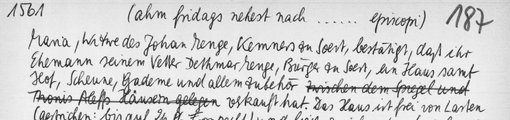 1561 (ahm fridags nehest nach ...... episcopi) 187
Maria, Witwe des Johan Menge, Kemners zu Soest, bestätigt, daß ihr
Ehemann seinem Vetter Dethmar Menge, Bürger zu Soest, ein Haus samt
Hof, Scheune, Gademe und allem Zubehör zwischen dem Spegel und
Thonis Aleffs Häusern gelegen verkauft hat. Das Haus ist frei von Lasten